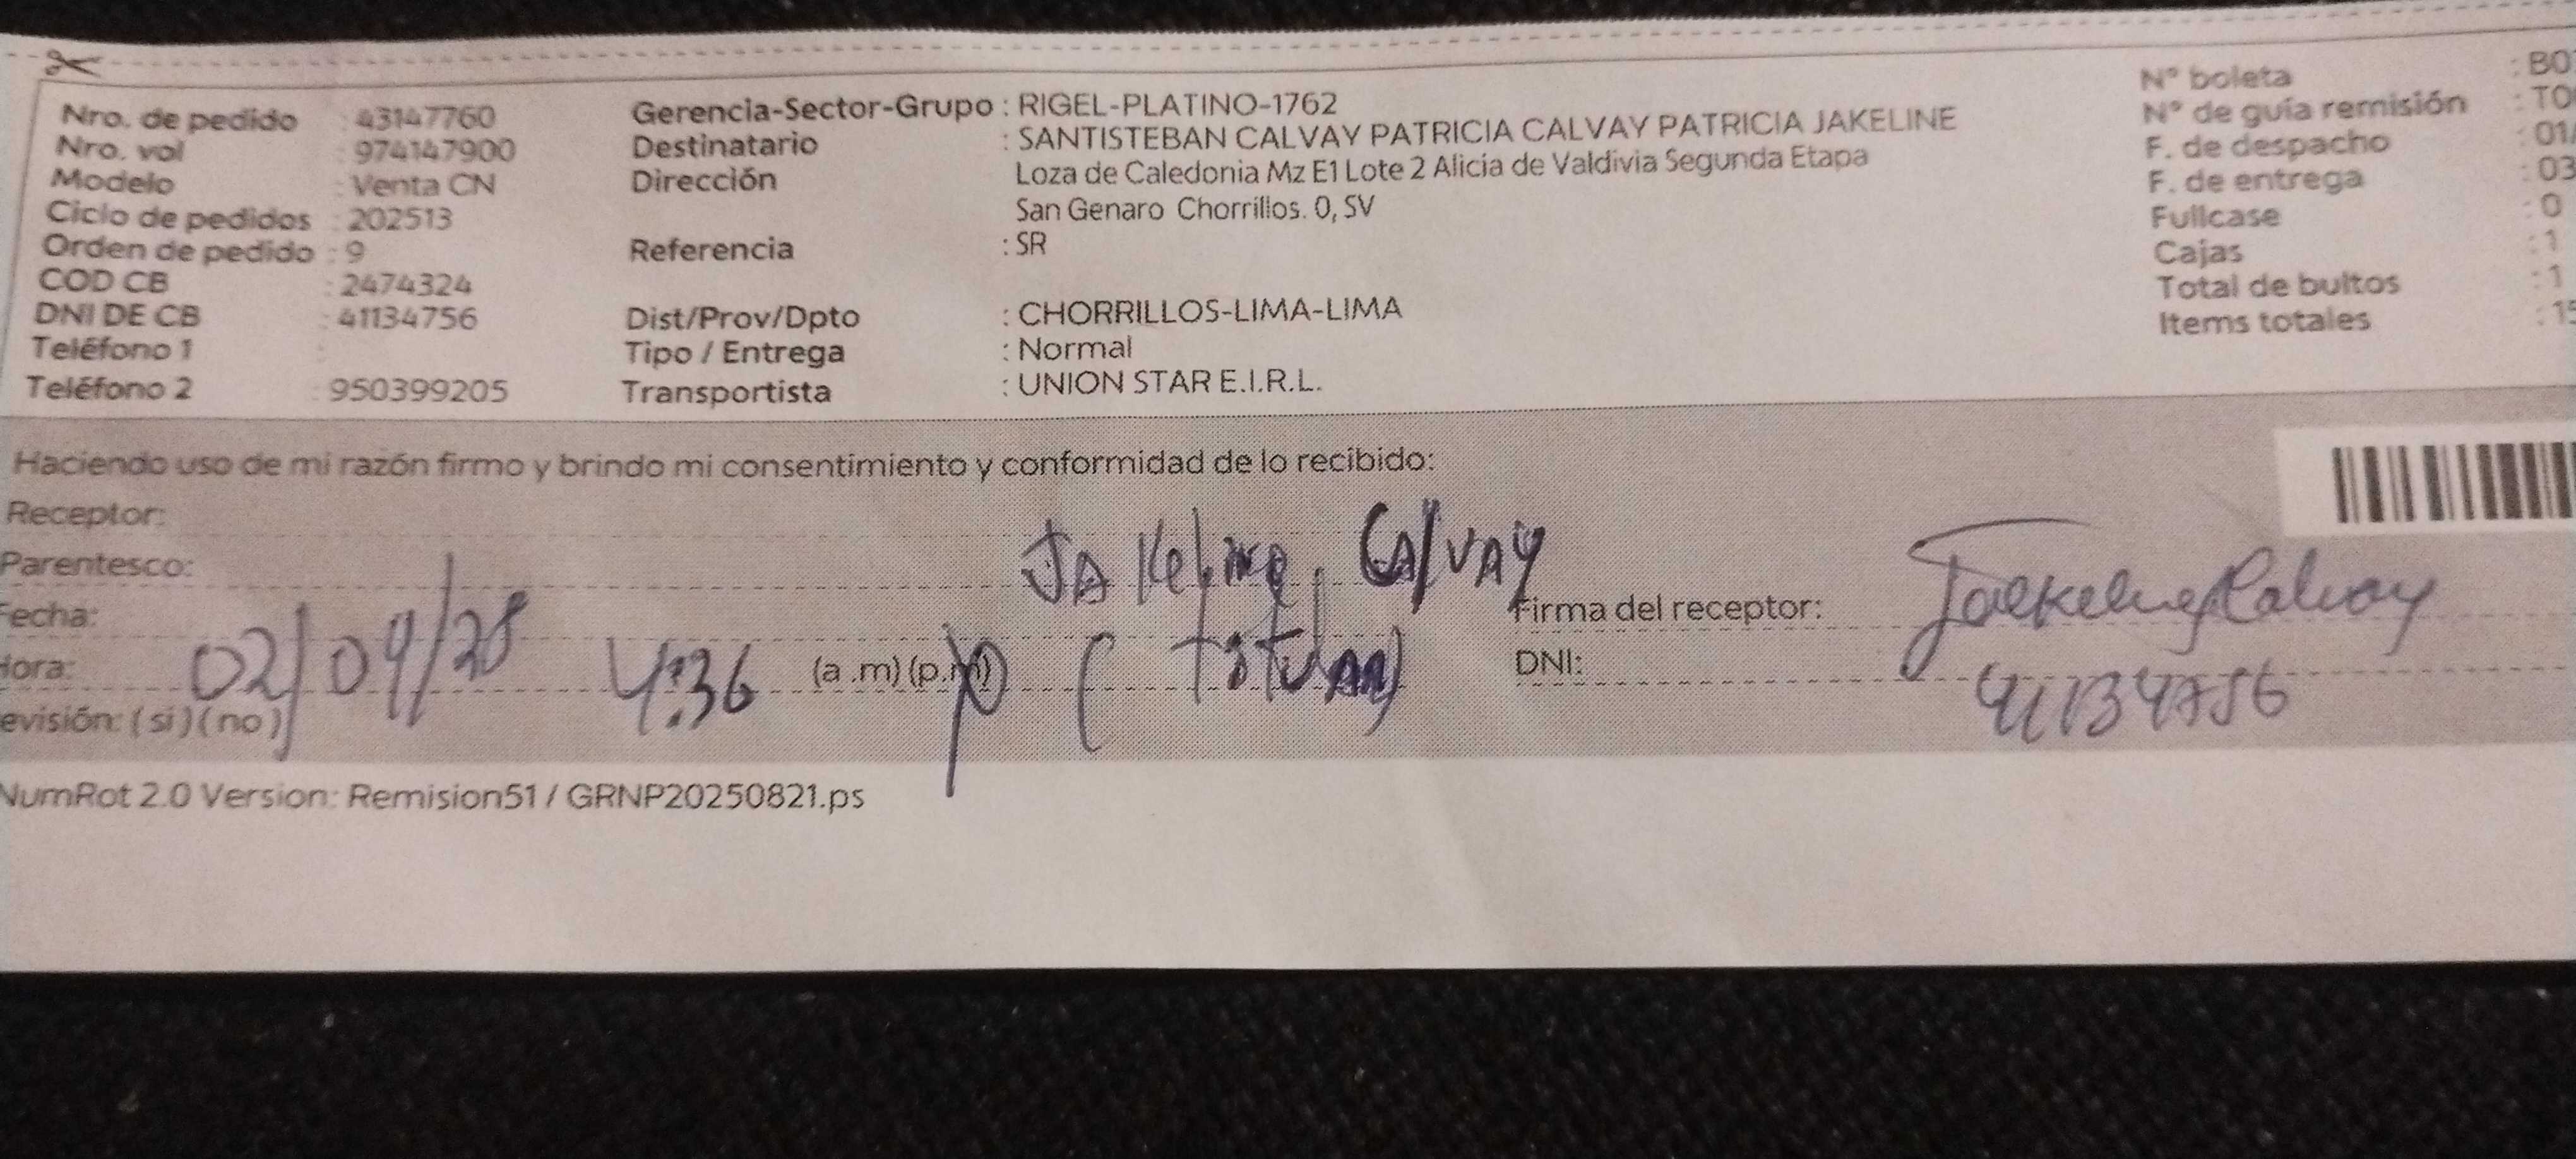 Nro. de pedido : 43147760
Nro. vol : 974147900
Modelo : Venta CN
Ciclo de pedidos : 202513
Orden de pedido : 9
COD CB : 2474324
DNI DE CB : 41134756
Teléfono 1 :
Teléfono 2 : 950399205
Gerencia-Sector-Grupo : RIGEL-PLATINO-1762
Destinatario : SANTISTEBAN CALVAY PATRICIA CALVAY PATRICIA JAKELINE
Dirección : Loza de Caledonia Mz E1 Lote 2 Alicia de Valdivia Segunda Etapa
San Genaro Chorrillos. 0, SV
Referencia : SR
Dist/Prov/Dpto : CHORRILLOS-LIMA-LIMA
Tipo / Entrega : Normal
Transportista : UNION STAR E.I.R.L.
N° boleta : B0
N° de guía remisión : T0
F. de despacho : 01
F. de entrega : 03
Fullcase : 0
Cajas : 1
Total de bultos : 1
Items totales : 15
Haciendo uso de mi razón firmo y brindo mi consentimiento y conformidad de lo recibido:
Receptor:
Parentesco:
JAKeline CAlVAY
Fecha:
Firma del receptor: Jackeline Calvay
Hora: 02/09/25 4:36 (a.m) (p.m) (titular)
DNI: 41134756
evisión: (si) (no)
NumRot 2.0 Version: Remision51 / GRNP20250821.ps